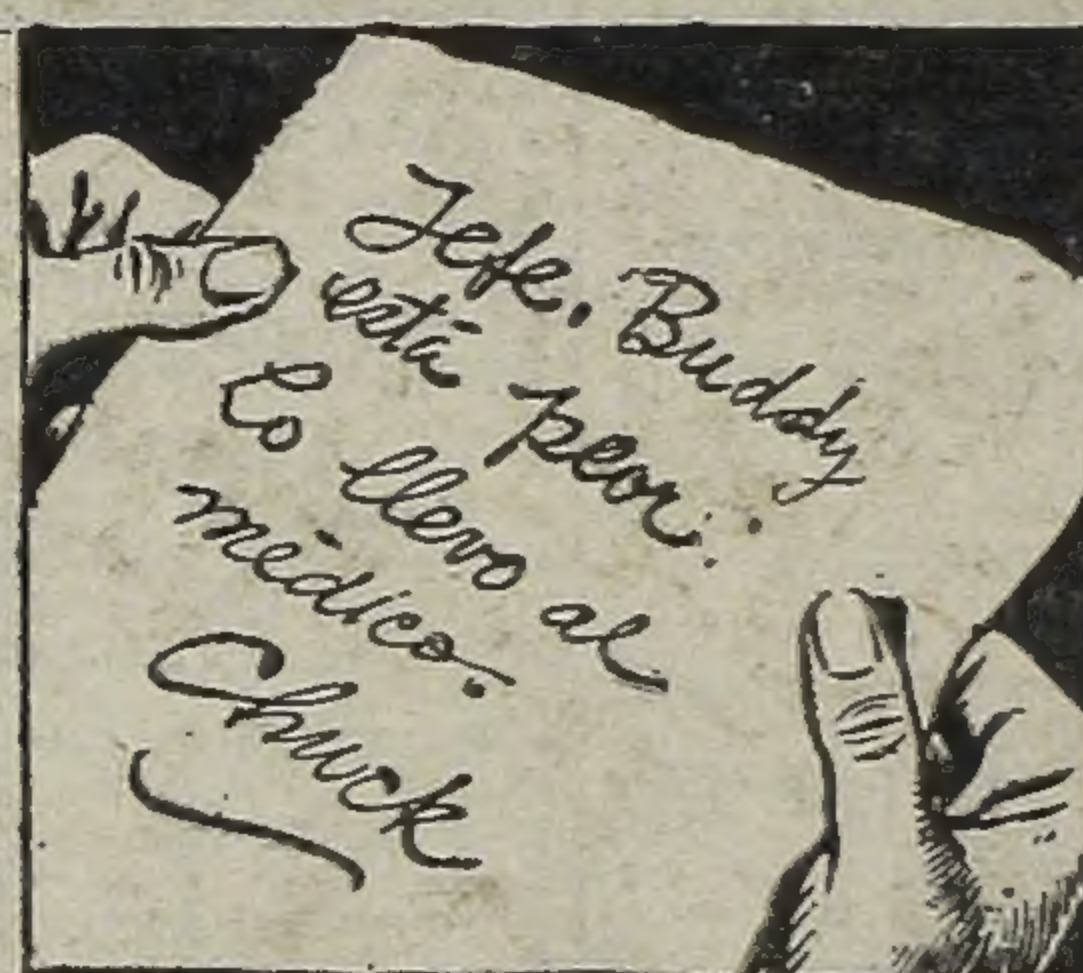 Jefe. Buddy
está peor.
Lo llevo al
médico.
Chuck